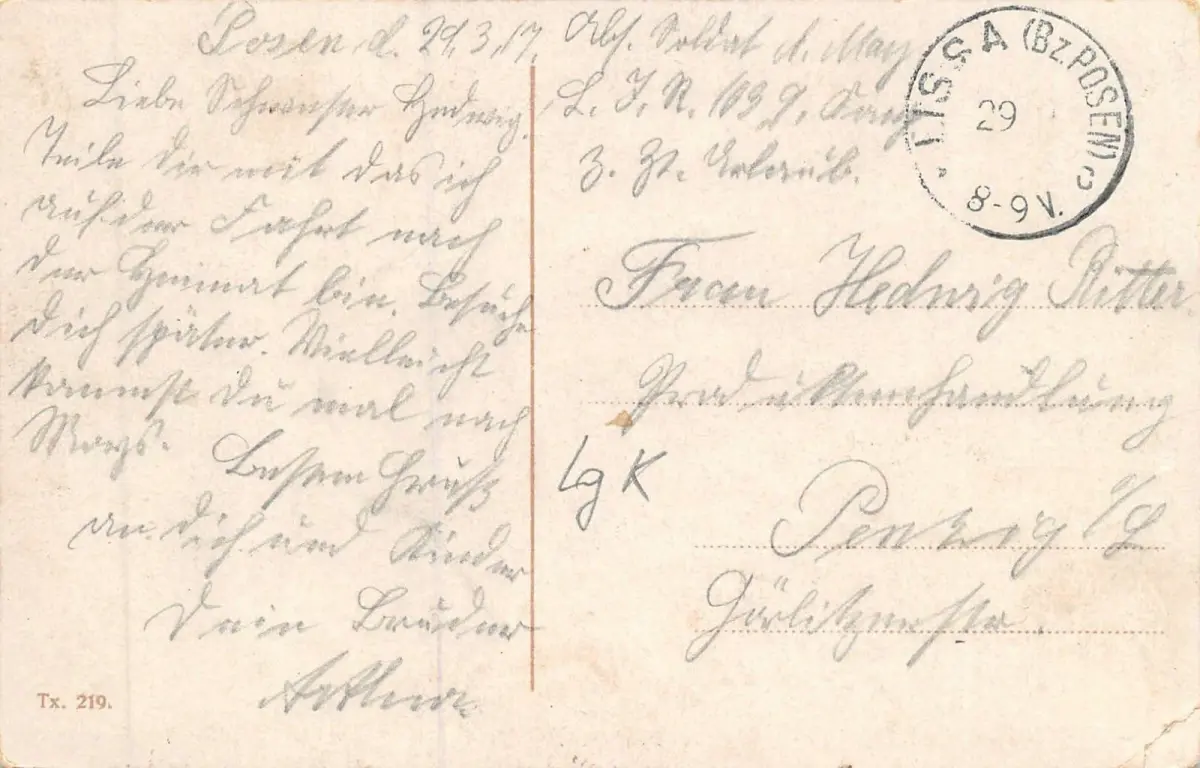 Posen, d. 29.3.17.
Liebe Schwester Hedwig.
Teile dir mit das ich
auf der Fahrt nach
der Heimat bin. Besuche
dich später. Vielleicht
kommst du mal nach
Besten Gruß
an dich und Kinder
Dein Bruder
Arthur.
Abs. Soldat A. May
L. I. R. 133 9. Komp
z. Zt. Urlaub.
LISSA (Bz. POSEN) c
29
8-9 V.
Frau Hedwig Ritter
Produktenhandlung
Lg K
Penzig o/L
Görlitzerstr.
Tx. 219.